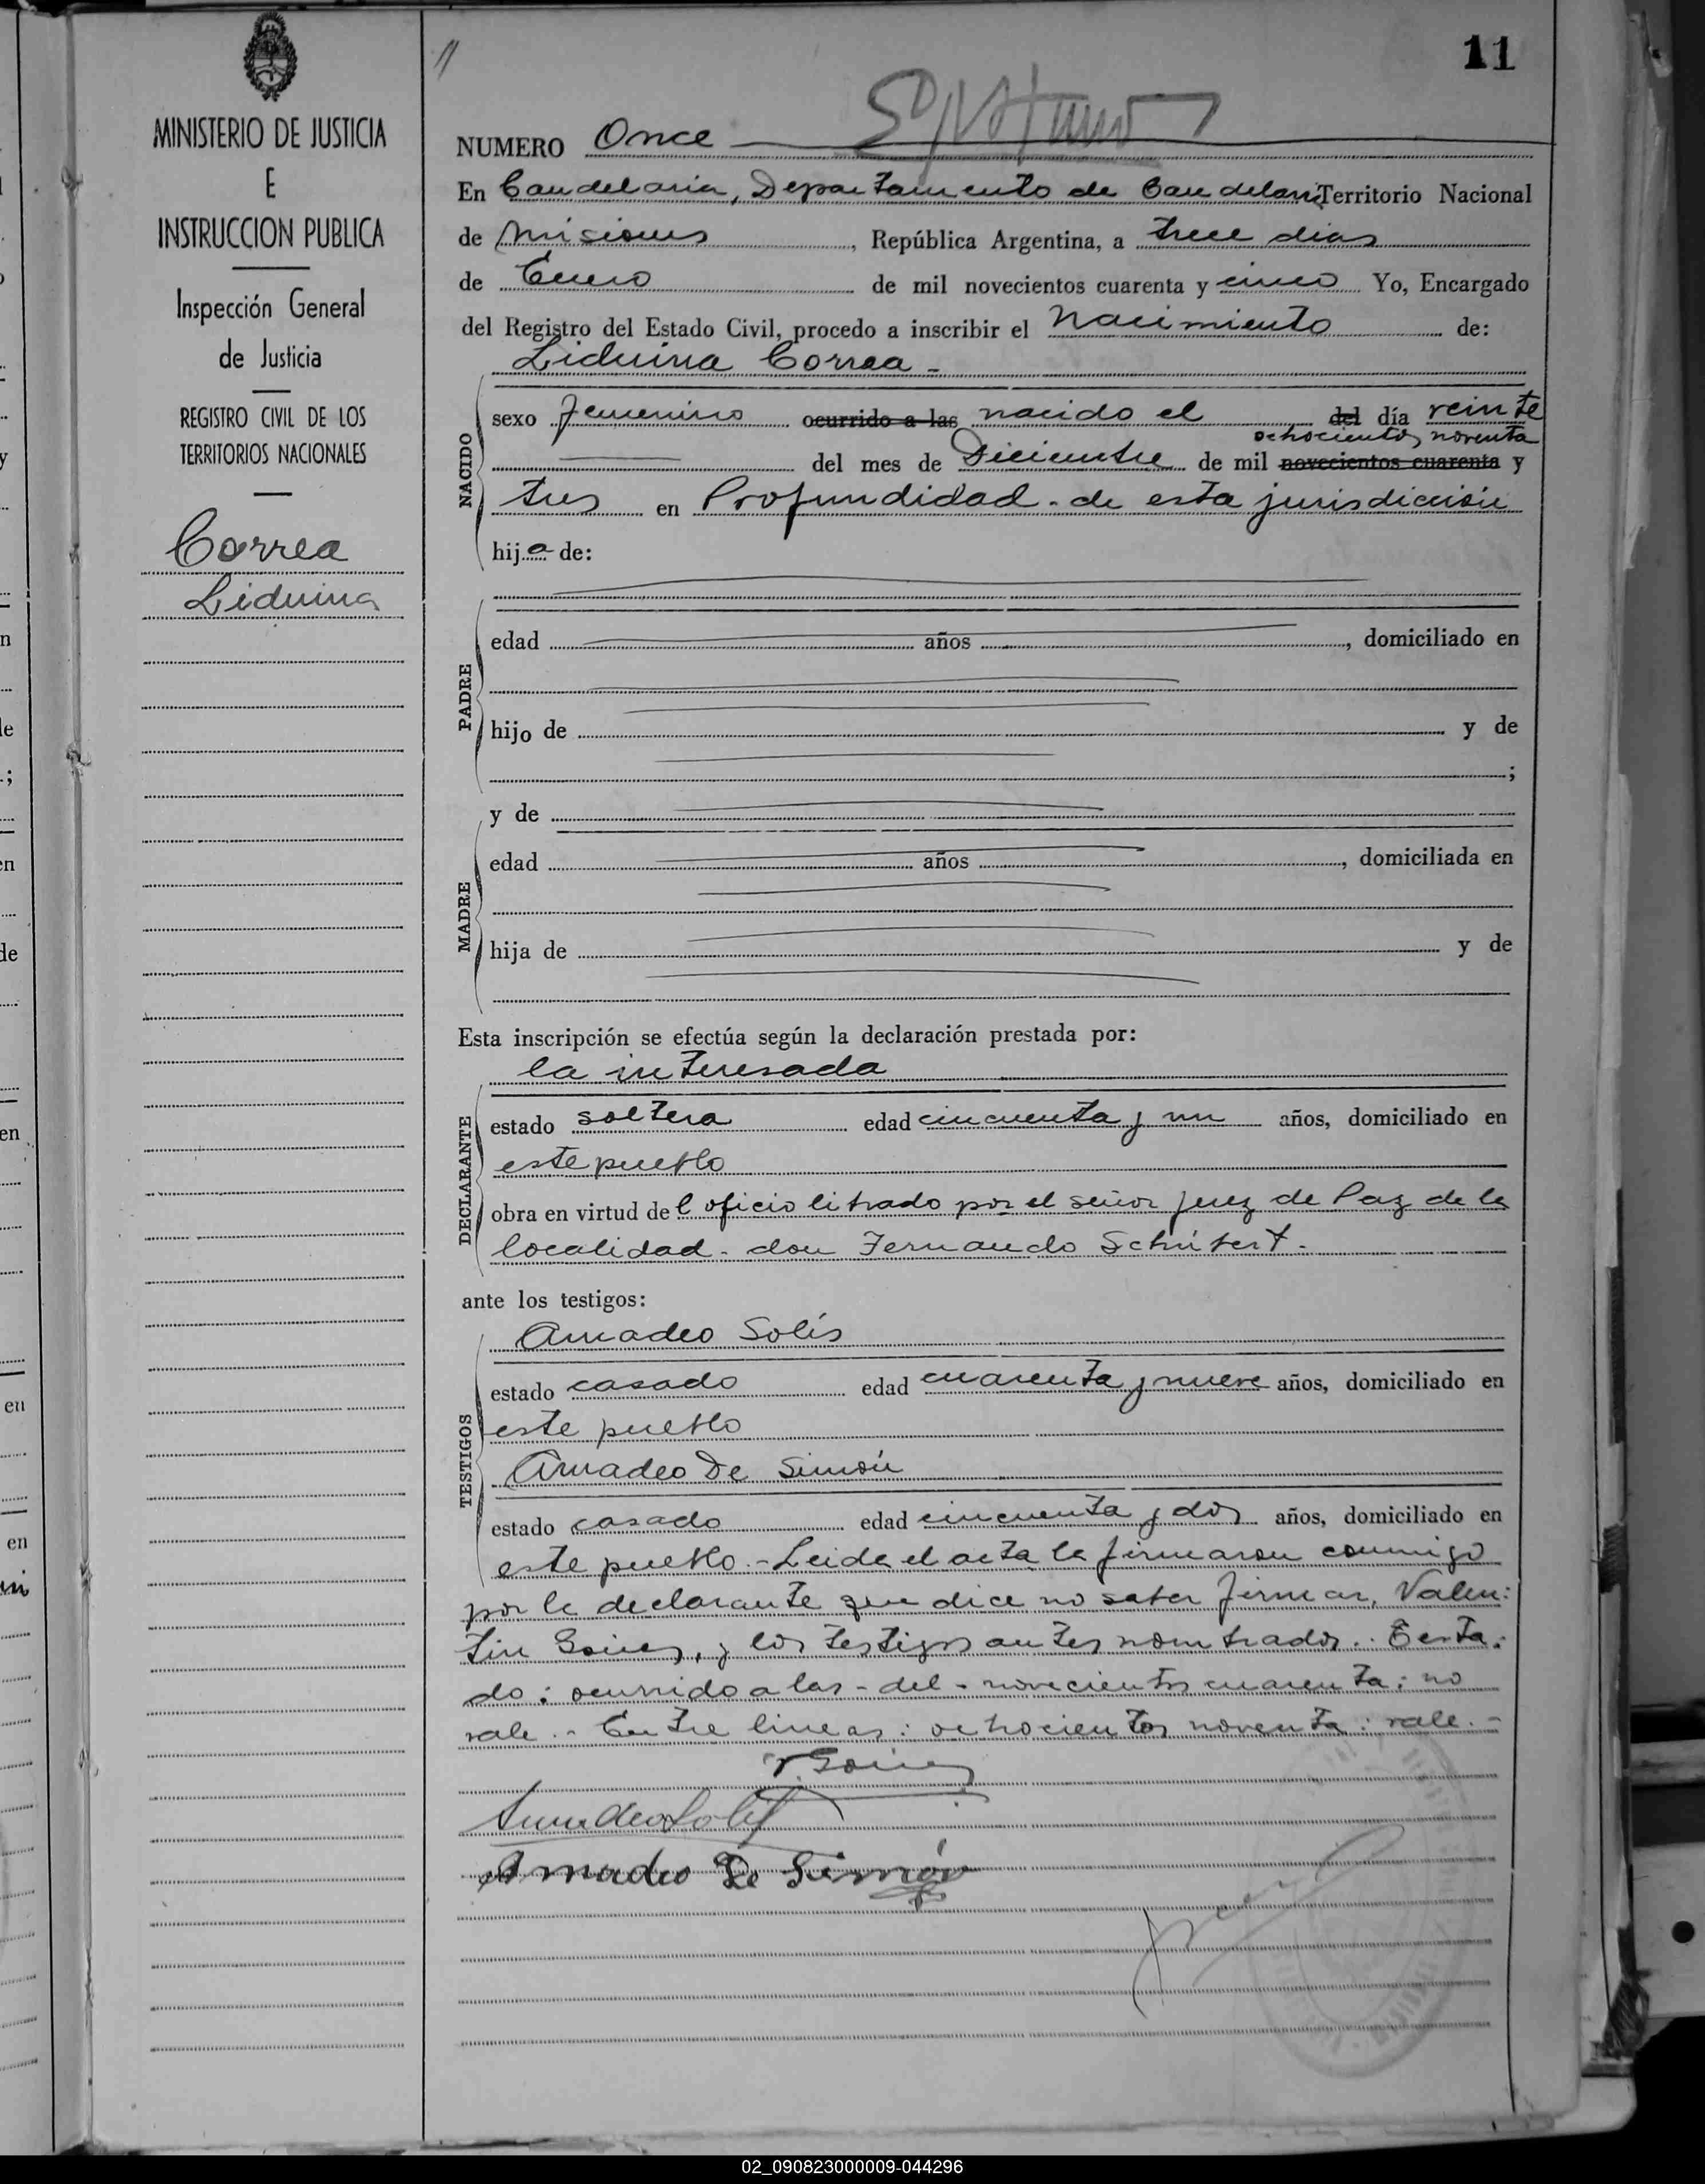 11
11
MINISTERIO DE JUSTICIA
E
INSTRUCCION PUBLICA
Inspección General
de Justicia
REGISTRO CIVIL DE LOS
TERRITORIOS NACIONALES
Correa
Liduina
NUMERO Once
En Candelaria, Departamento de Candelaria Territorio Nacional
de Misiones, República Argentina, a trece dias
de Enero de mil novecientos cuarenta y cinco Yo, Encargado
del Registro del Estado Civil, procedo a inscribir el nacimiento de:
Liduina Correa -
NACIDO
sexo femenino ocurrido a las nacido el del día veinte
ochocientos noventa
del mes de Diciembre de mil novecientos cuarenta y
tres en Profundidad - de esta jurisdicción
hija de:
PADRE
edad años, domiciliado en
hijo de y de
;
MADRE
y de
edad años, domiciliada en
hija de y de
Esta inscripción se efectúa según la declaración prestada por:
DECLARANTE
la interesada
estado soltera edad cincuenta y un años, domiciliado en
este pueblo
obra en virtud del oficio librado por el señor Juez de Paz de la
localidad - don Fernando Schubert -
ante los testigos:
TESTIGOS
Amadeo Solis
estado casado edad cuarenta y nueve años, domiciliado en
este pueblo
Amadeo De Simón
estado casado edad cincuenta y dos años, domiciliado en
este pueblo.- Leida el acta la firmaron conmigo
por la declarante que dice no saber firmar, Valen-
tin y los testigos antes nombrados.- Testa-
do: ocurrido a las - del - novecientos cuarenta: no
vale.- Entre lineas: ochocientos noventa: vale.-
Amadeo Solis
Amadeo De Simón
02_090823000009-044296